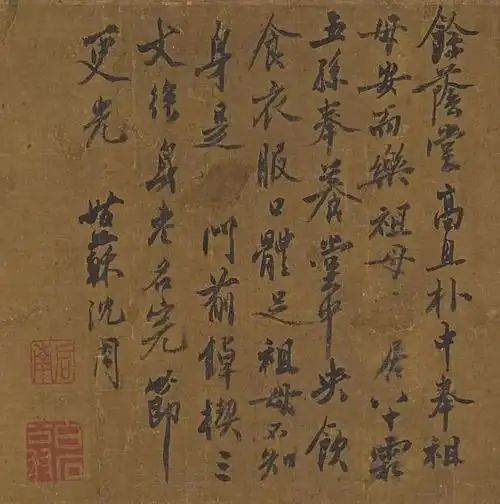 餘蔭堂高且朴中奉祖
母安而樂祖母居八十霜
五孫奉養堂中央飲
食衣服口體足祖母不知
身是門前綽楔三
丈身老名完節
更光
姑蘇沈周
啟南
白石翁